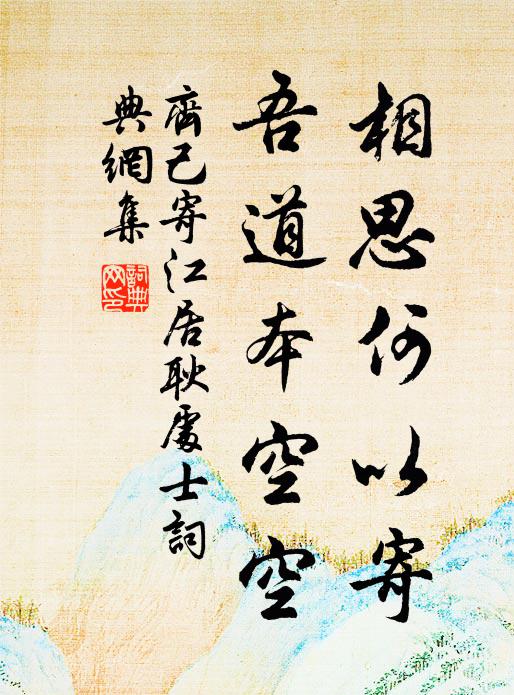 相思何以寄
吾道本空空
齊己寄江居耿處士詞
典網集
詞典
网印